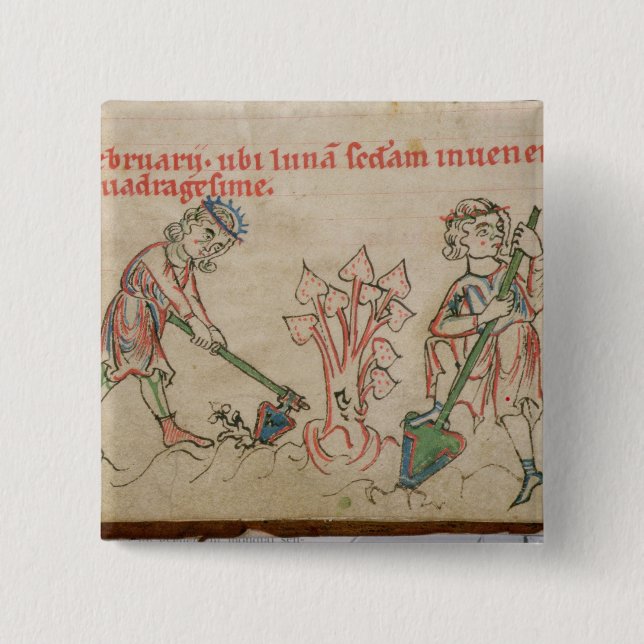 ebruarij. ubi lunā scd̄am inuene
uadragesime.